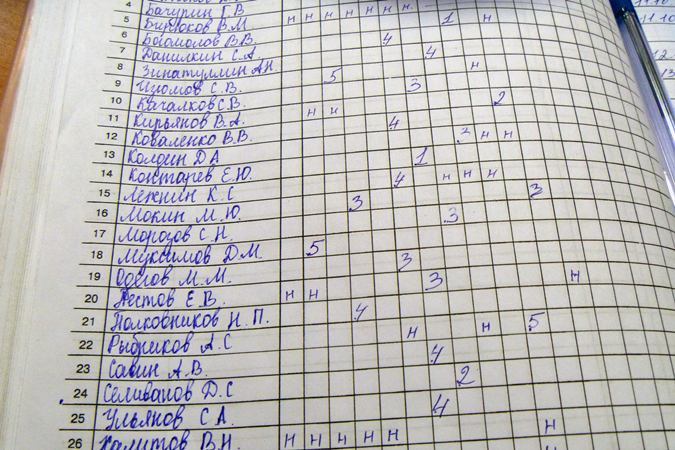 4 Багурин Г.В н н н н н н н
5 Бирюков В.М 1 н
6 Богомолов В.В. 4
7 Данилкин С.А 4
8 Зинатуллин А.Н. н
9 Изюмов С.В. 5 3
10 Качалков С.В. 2
11 Кирьянов В.А. н н 4
12 Коваленко В.В. 2 н н
13 Колдин Д.А 1
14 Константинов Е.Ю. 4 н н н
15 Ленкин К.С 3 3
16 Мокин М.Ю. 3
17 Морозов С.Н.
18 Муксимов Д.М. 5 3
19 Одегов М.М. 3 н
20 Пестов Е.В. н н
21 Полковников Н.П. 4 н н 5
22 Рыбриков А.С 4
23 Савин А.В. 2
24 Селиванов Д.С 4
25 Ульянов С.А. н
26 Халитов В.Н. н н н н н н
12
13